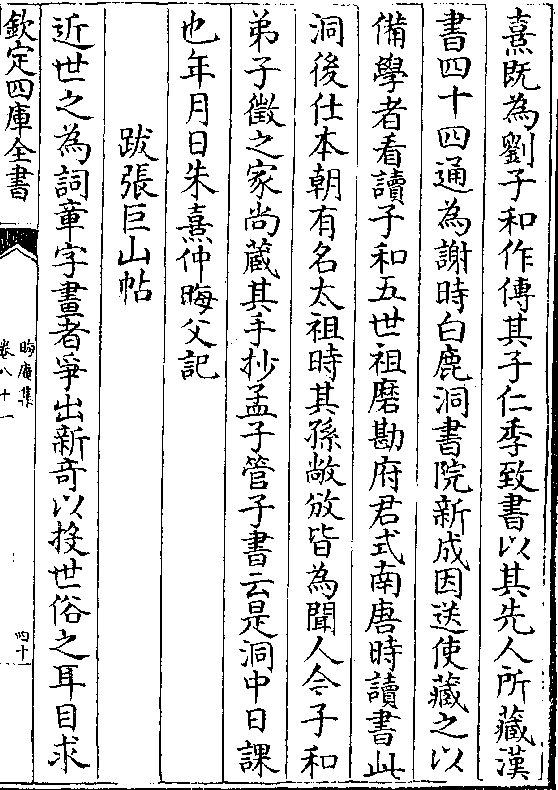 熹既為劉子和作傳其子仁季致書以其先人所藏漢
書四十四通為謝時白鹿洞書院新成因送使藏之以
備學者看讀子和五世祖磨勘府君式南唐時讀書此
洞後仕本朝有名太祖時其孫敞攽皆為聞人今子和
弟子徵之家尚藏其手抄孟子管子書云是洞中日課
也年月日朱熹仲晦父記
跋張巨山帖
近世之為詞章字畫者爭出新奇以投世俗之耳目求
欽定四庫全書
晦庵集
卷八十一
四十